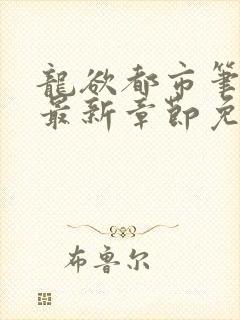 龍欲都市筆
最新章節免
布魯尔